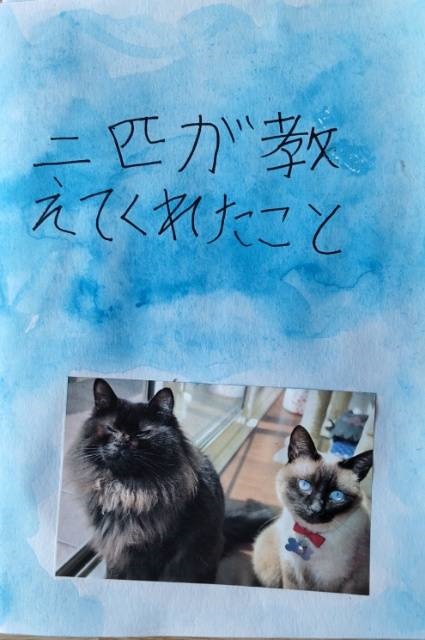 二匹が教
えてくれたこと